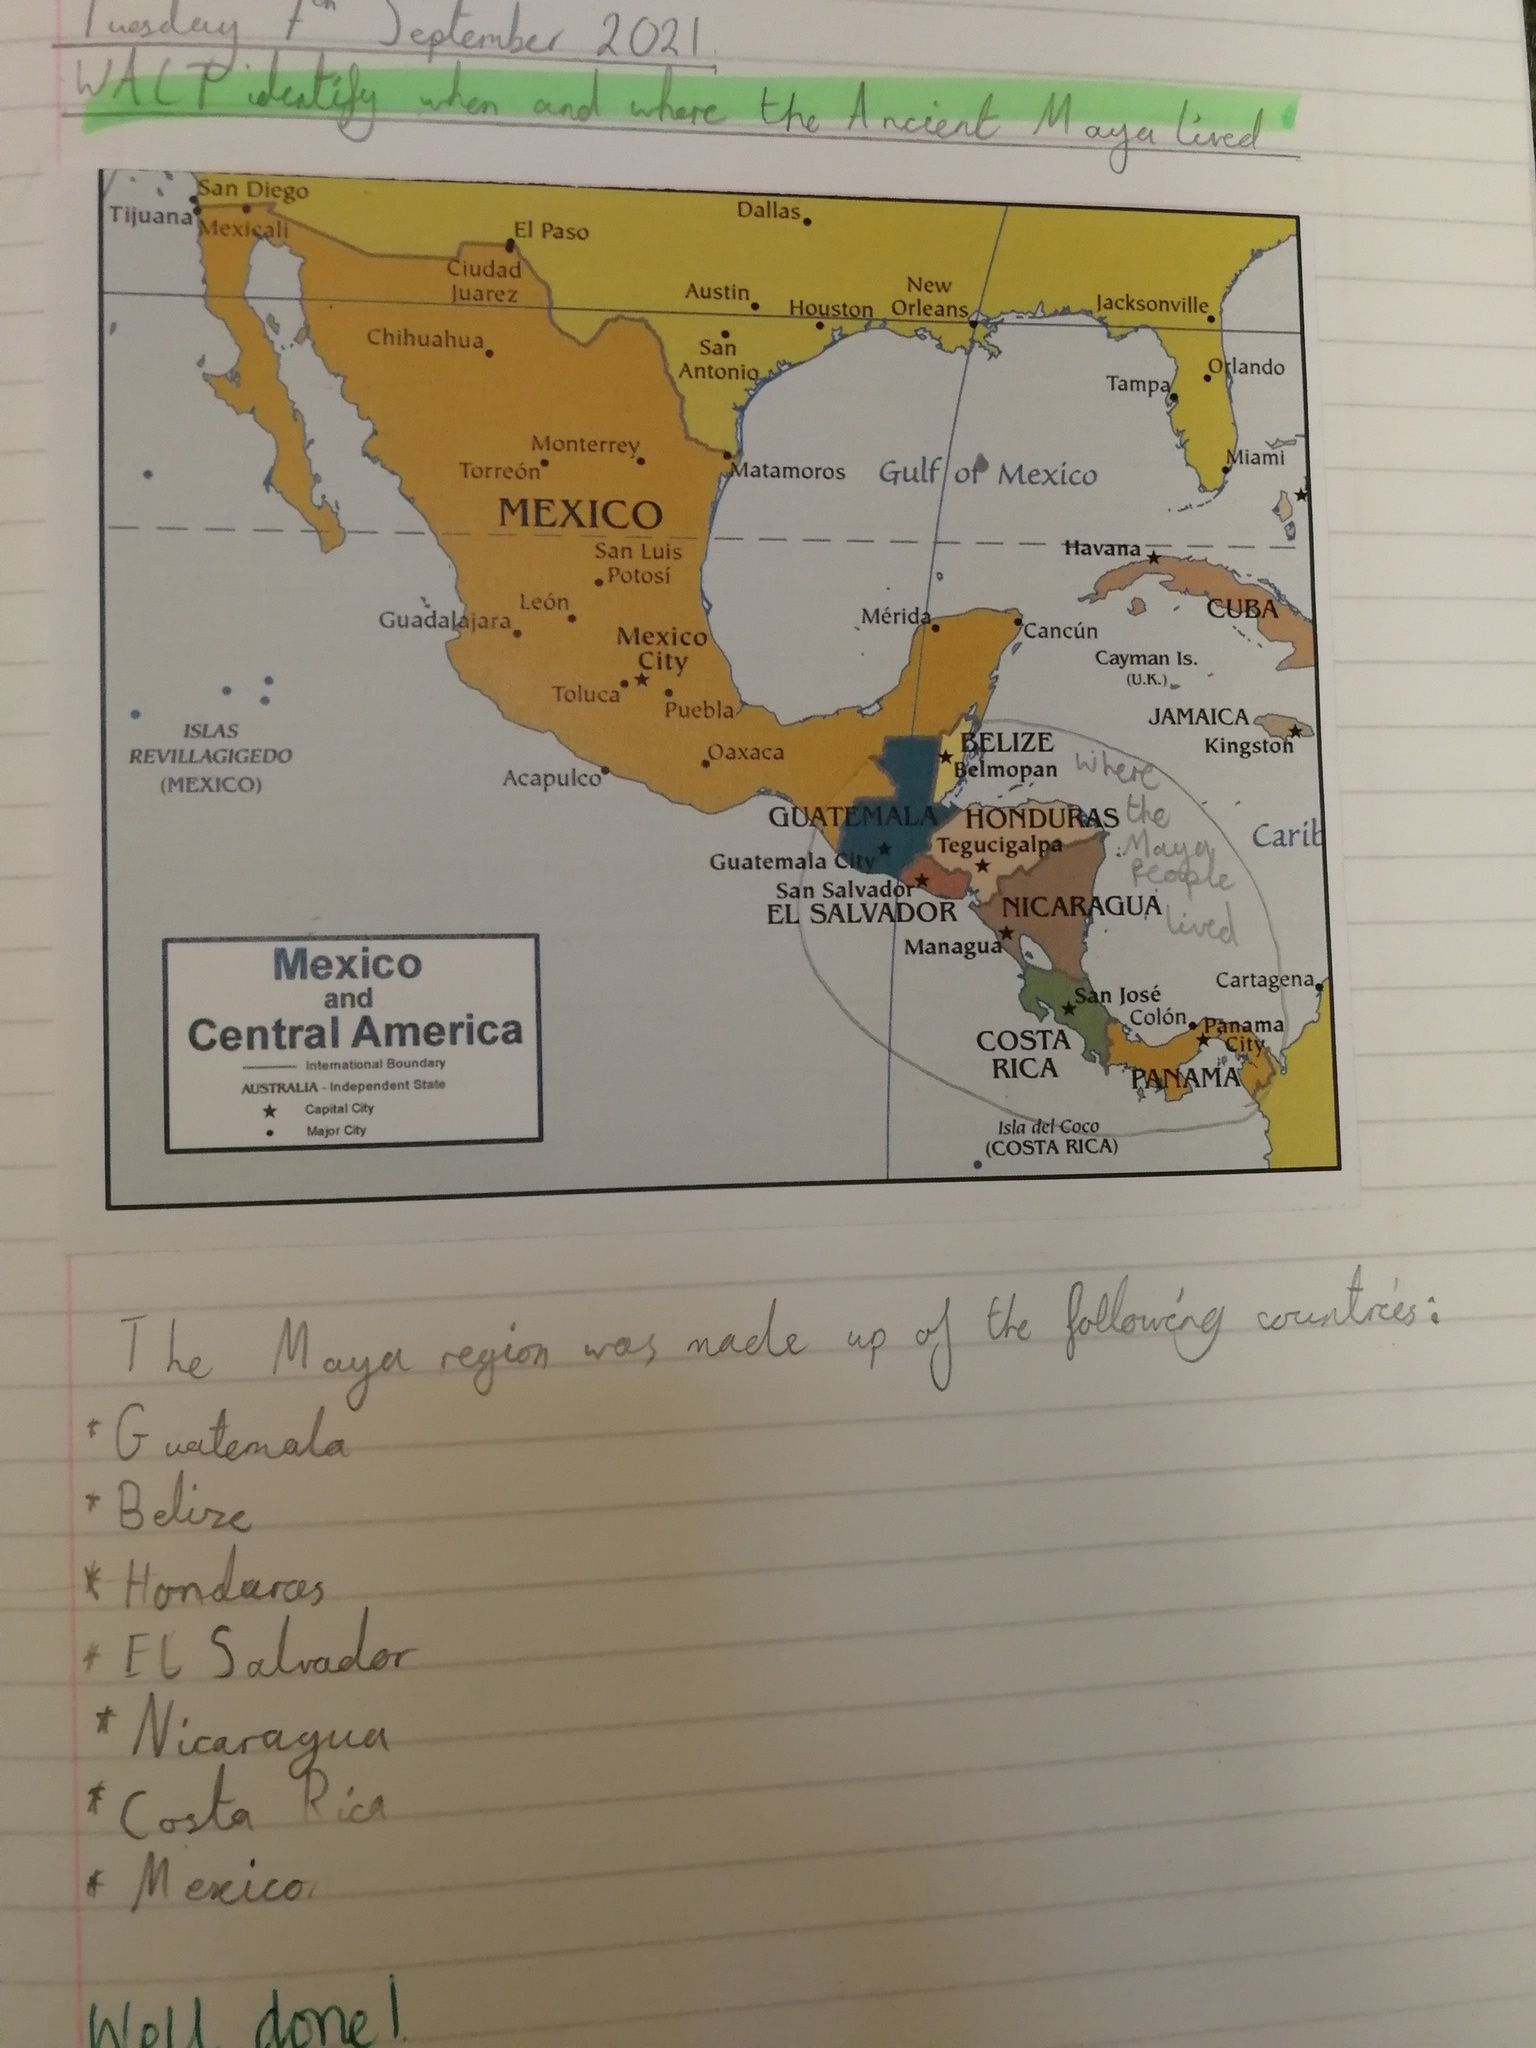 Tuesday 7th September 2021.
WALT identify when and where the Ancient Maya lived
San Diego
Tijuana
Mexicali
El Paso
Dallas
Ciudad
Juarez
Austin
Houston
New
Orleans
Jacksonville
Chihuahua
San
Antonio
Orlando
Tampa
Monterrey
Torreón
Matamoros
Gulf of Mexico
Miami
MEXICO
San Luis
Potosí
Havana
CUBA
León
Guadalajara
Mexico
City
Mérida
Cancún
Cayman Is.
(U.K.)
Toluca
Puebla
JAMAICA
Kingston
ISLAS
REVILLAGIGEDO
(MEXICO)
Oaxaca
Acapulco
BELIZE
Belmopan
where
the
Maya
People
lived
GUATEMALA
HONDURAS
Carib
Tegucigalpa
Guatemala City
San Salvador
EL SALVADOR
NICARAGUA
Managua
Cartagena
San José
Colón
Panama
City
COSTA
RICA
PANAMA
Isla del Coco
(COSTA RICA)
Mexico
and
Central America
International Boundary
AUSTRALIA - Independent State
Capital City
Major City
The Maya region was made up of the following countries:
* Guatemala
* Belize
* Honduras
* El Salvador
* Nicaragua
* Costa Rica
* Mexico.
Well done!